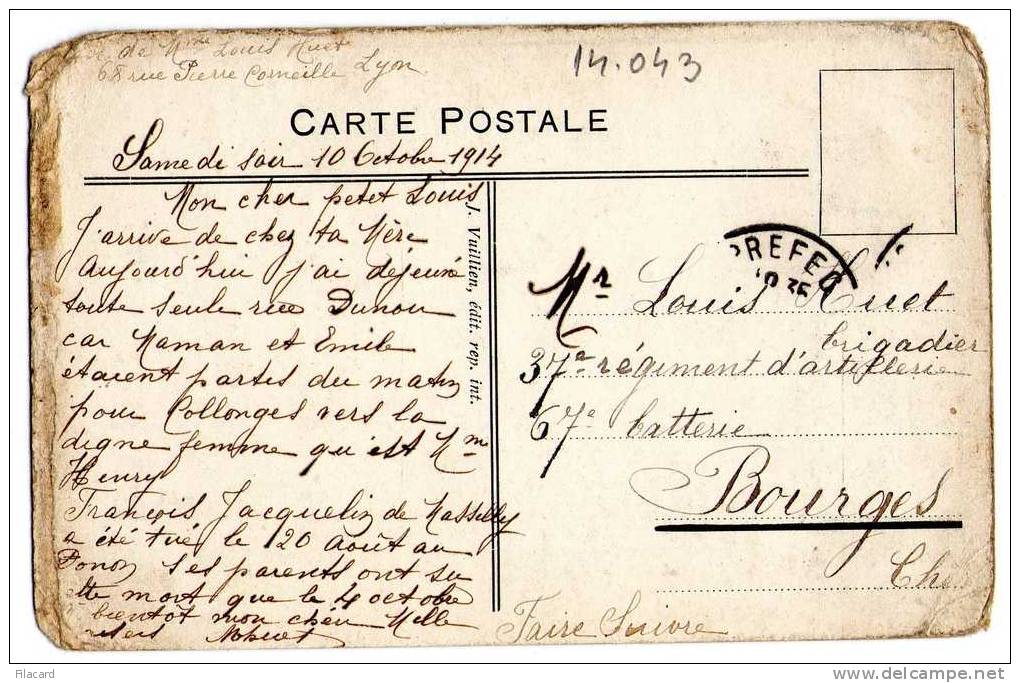 de Mme Louis Huet
68 rue Pierre Corneille Lyon
14.043
CARTE POSTALE
Samedi soir 10 Octobre 1914
Mon cher petit Louis
J'arrive de chez ta Mère
Aujourd'hui j'ai déjeuné
toute seule rue Dunoir
car Maman et Emile
étaient partis du matin
pour Collonges vers la
digne femme qu'est Mme
Henry
François Jacquelin de Massilly
a été tué le 20 août au
Donon ses parents ont su
tte mort que le 4 octobre
bientôt mon chéri Mille
J. Vuillien, édit. rep. int.
PREFEC
Mr Louis Huet
brigadier
37e régiment d'artillerie
67e batterie
Bourges
Che
Faire Suivre
Filacard
www.delcampe.net